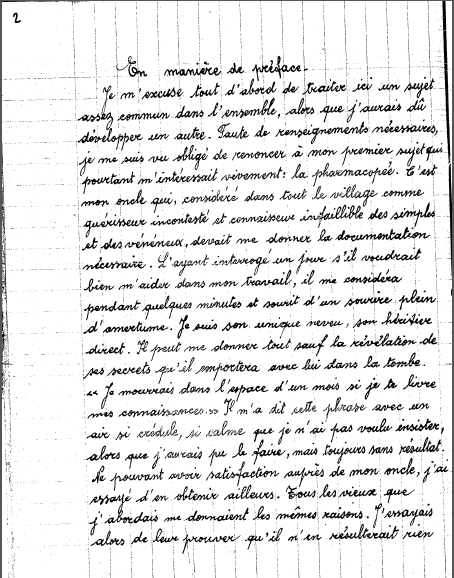 2
En manière de préface.
Je m'excuse tout d'abord de traiter ici un sujet
assez commun dans l'ensemble, alors que j'aurais dû
développer un autre. Faute de renseignements nécessaires,
je me suis vu obligé de renoncer à mon premier sujet qui
pourtant m'intéressait vivement: la pharmacopée. C'est
mon oncle qui, considéré dans tout le village comme
guérisseur incontesté et connaisseur infaillible des simples
et des vénéneux, devait me donner la documentation
nécessaire. L'ayant interrogé un jour s'il voudrait
bien m'aider dans mon travail, il me considéra
pendant quelques minutes et sourit d'un sourire plein
d'amertume. Je suis son unique neveu, son héritier
direct. Il peut me donner tout sauf la révélation de
ses secrets qu'il emportera avec lui dans la tombe.
"Je mourrais dans l'espace d'un mois si je te livre
mes connaissances." Il m'a dit cette phrase avec un
air si crédule, si calme que je n'ai pas voulu insister,
alors que j'aurais pu le faire, mais toujours sans résultat.
Ne pouvant avoir satisfaction auprès de mon oncle, j'ai
essayé d'en obtenir ailleurs. Tous les vieux que
j'abordais me donnaient les mêmes raisons. J'essayais
alors de leur prouver qu'il n'en résulterait rien